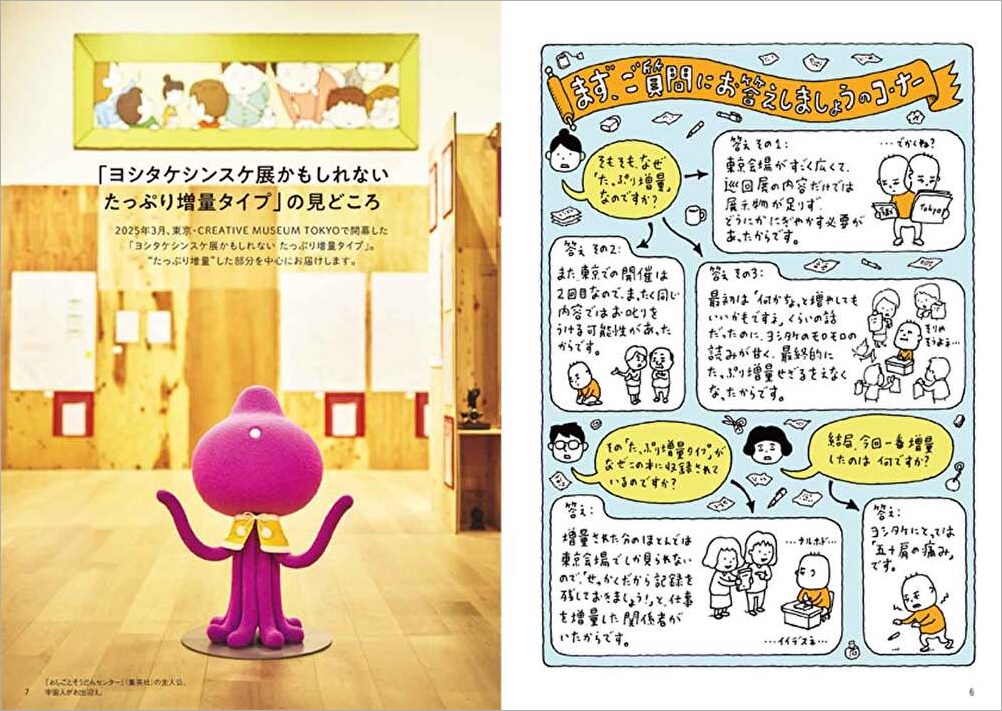 「ヨシタケシンスケ展かもしれない
たっぷり増量タイプ」の見どころ
2025年3月、東京・CREATIVE MUSEUM TOKYOで開幕した
「ヨシタケシンスケ展かもしれない たっぷり増量タイプ」。
“たっぷり増量”した部分を中心にお届けします。
『おしごとそうだんセンター』（集英社）の主人公、
宇宙人がお出迎え。
7
まず、ご質問にお答えしましょうのコーナー
そもそも、なぜ
「たっぷり増量」
なのですか？
答え その1：
東京会場がすごく広くて、
巡回展の内容だけでは
展示物が足りず、
どうにかにぎやかす必要が
あったからです。
…でかくね？
Tokyo
答え その2：
また、東京での開催は
2回目なので、まったく同じ
内容ではお叱りを
うける可能性があった
からです。
答え その3：
最初は「何かちょっと増やしても
いいかもですねえ」くらいの話
だったのに、ヨシタケのモロモロの
読みが甘く、最終的に
たっぷり増量せざるをえなく
なったからです。
そりゃ
そうよね…
その「たっぷり増量タイプ」が
なぜこの本に収録されて
いるのですか？
結局、今回一番増量
したのは 何ですか？
答え：
増量された分のほとんどは
東京会場でしか見られない
ので、「せっかくだから記録を
残しておきましょう！」と、仕事
を増量した関係者が
いたからです。
…ナルホド…
…イイデスネ…
答え：
ヨシタケにとっては
「五十肩の痛み」
です。
6